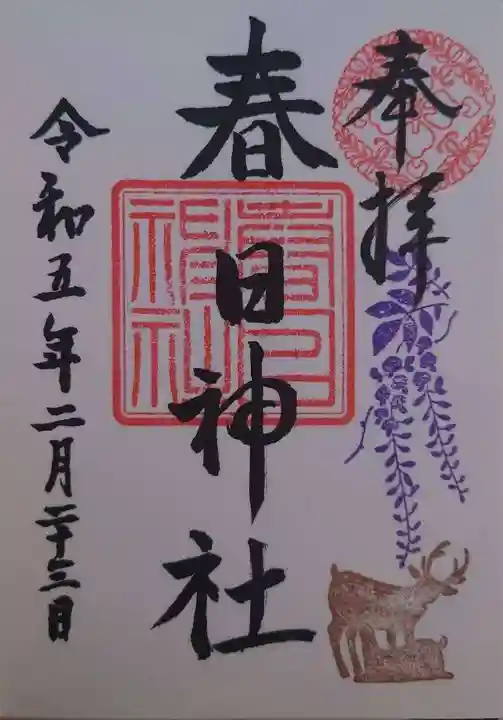 奉拝
春日神社
春日神社
令和五年二月二十三日